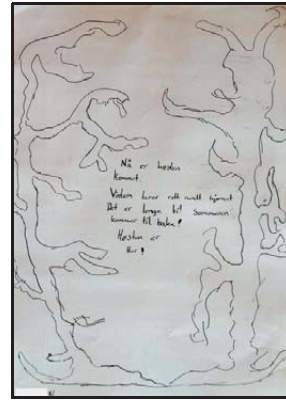 Nå er høsten
kommet.
Vinteren lurer rett rundt hjørnet
Det er lenge til sommeren
kommer til bake!
Høsten er
her!